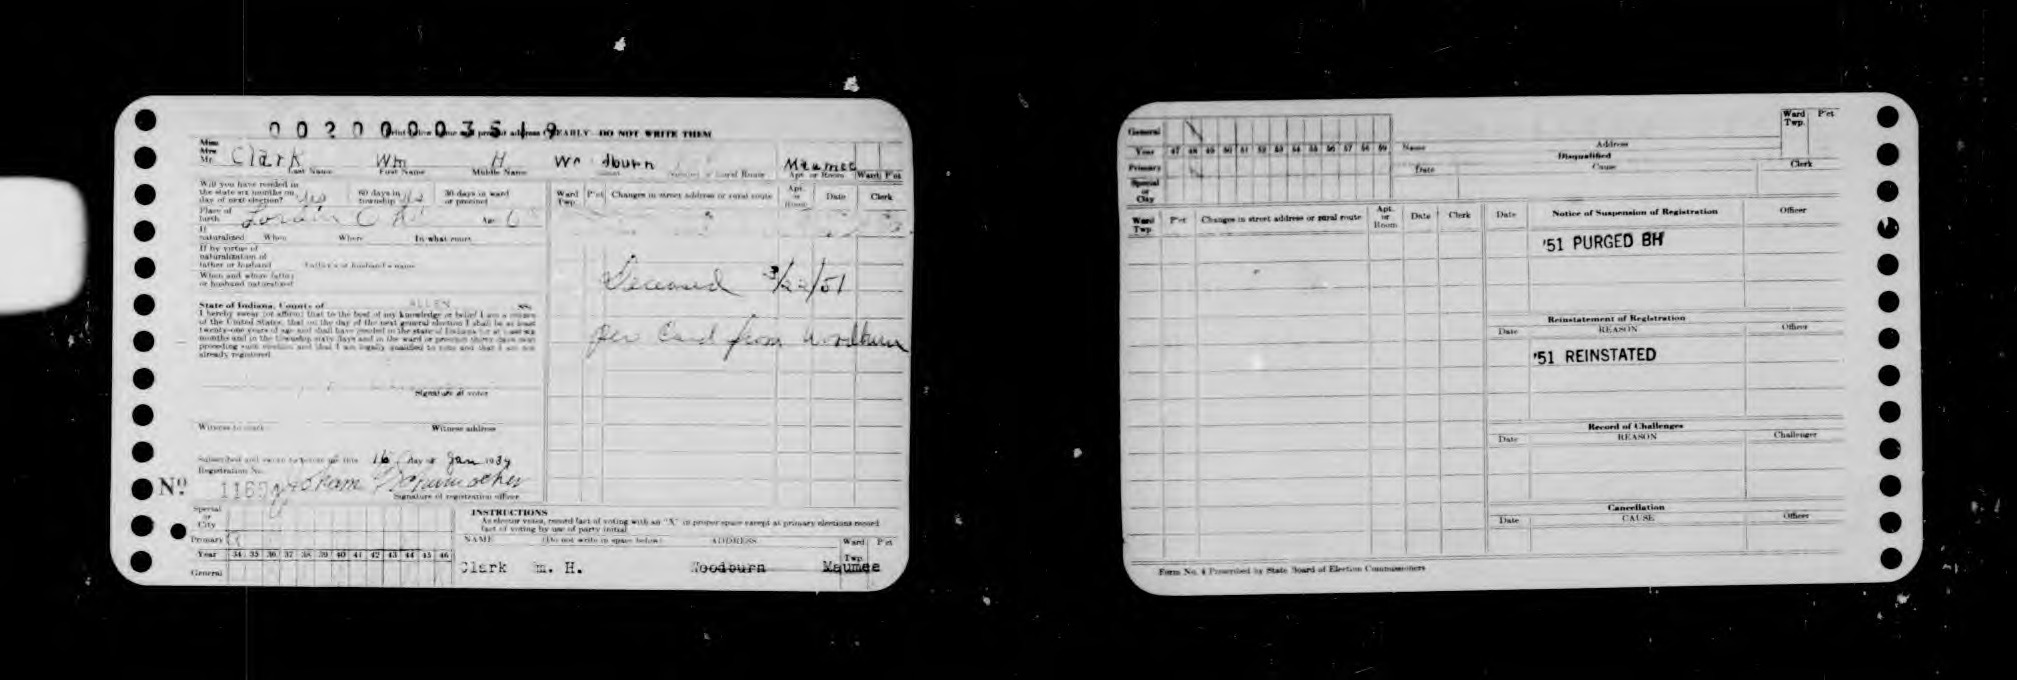 00200003519
EARLY - DO NOT WRITE THEM
Miss
Mrs
Mr. Clark Wm H Maumee
Last Name First Name Middle Name Apt. or Room Ward Pct
Will you have resided in
the state six months on
day of next election? Yes 60 days in township Yes 30 days in ward or precinct
Place of birth Lorain Age
If naturalized When Where In what court
If by virtue of
naturalization of
father or husband Father's or husband's name
When and where father
or husband naturalized
State of Indiana, County of ALLEN ss:
I hereby swear (or affirm) that to the best of my knowledge or belief I am a citizen
of the United States, that on the day of the next general election I shall be at least
twenty-one years of age and shall have resided in the state of Indiana for at least six
months and in the township sixty days and in the ward or precinct thirty days next
preceding such election and that I am legally qualified to vote and that I am not
already registered
Signature of voter
Witness to mark Witness address
Subscribed and sworn to before me this 16 day of Jan 1934
Registration No.
No.
Signature of registration officer
Ward Twp. Pct Changes in street address or rural route Apt. or Room Date Clerk
Deceased 3/22/51
per Card from Woodburn
Special or City
Primary
Year 34 35 36 37 38 39 40 41 42 43 44 45 46
General
INSTRUCTIONS
As elector votes, record fact of voting with an "X" in proper space except at primary elections record
fact of voting by use of party initial
NAME (Do not write in space below) ADDRESS Ward Twp. Pct
Clark m. H. Woodburn Maumee
General
Year 47 48 49 50 51 52 53 54 55 56 57 58 59
Primary
Special or City
Name Address Ward Twp. Pct
Disqualified
Date Cause Clerk
Ward Twp Pct Changes in street address or rural route Apt. or Room Date Clerk
Date Notice of Suspension of Registration Officer
'51 PURGED BH
Reinstatement of Registration
Date REASON Officer
'51 REINSTATED
Record of Challenges
Date REASON Challenger
Cancellation
Date CAUSE Officer
Form No. 4 Prescribed by State Board of Election Commissioners